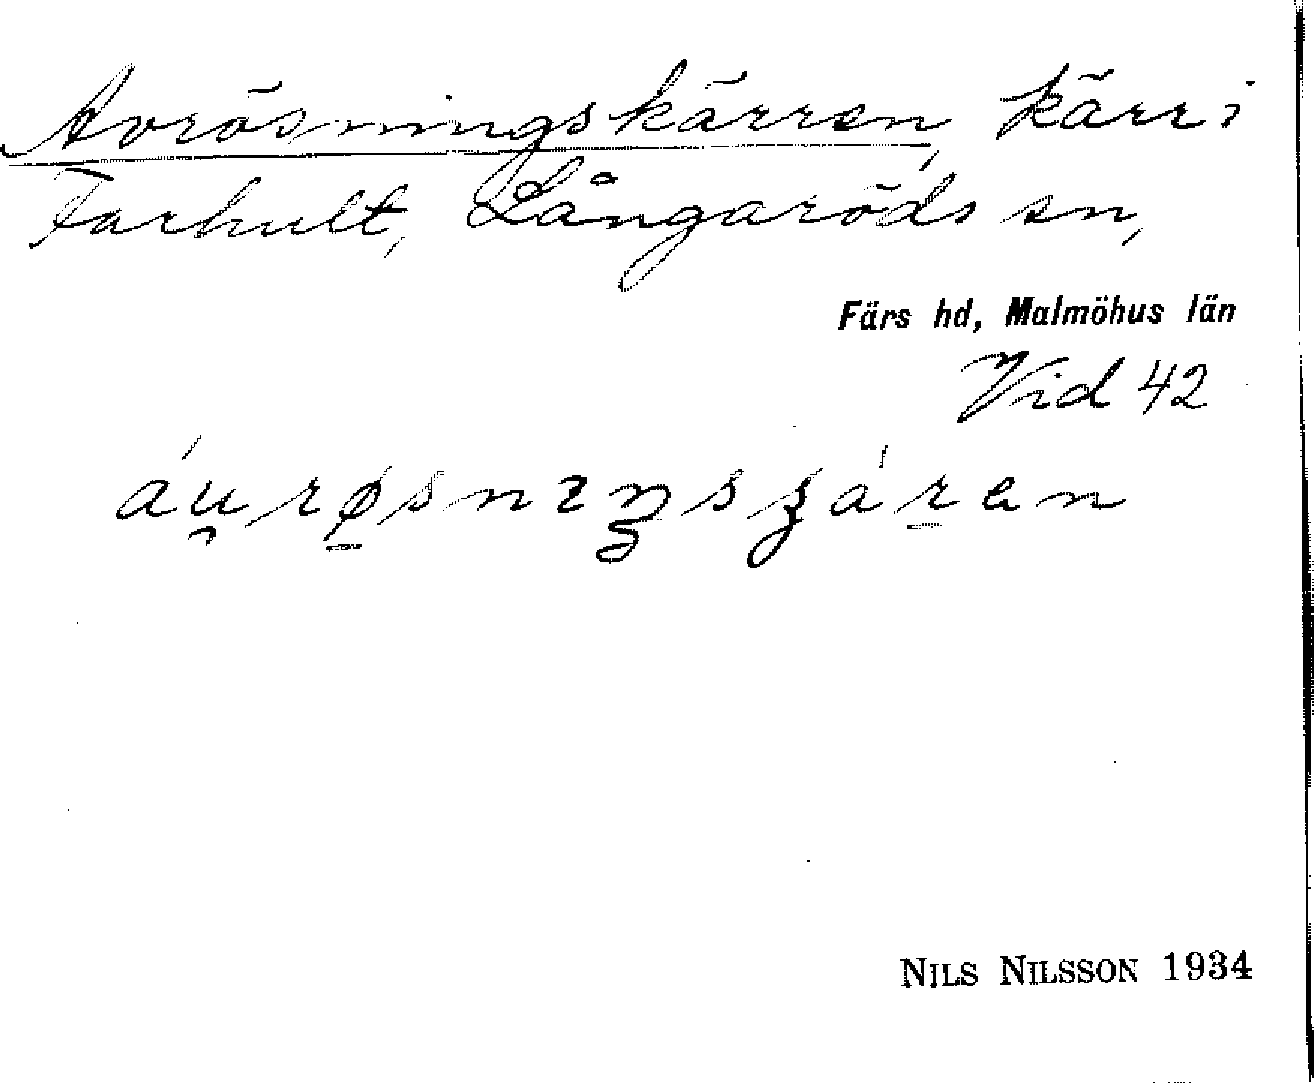 Avrösningskärren, kärr i
Farhult, Långaröds sn,
Färs hd, Malmöhus län
Vid 42
NILS NILSSON 1934